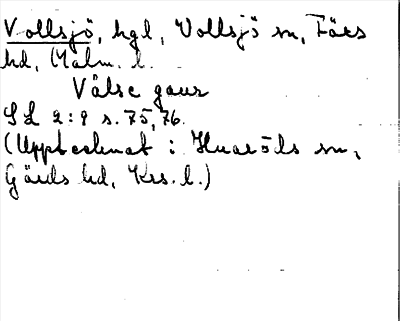 Vollsjö, hgl, Vollsjö sn, Färs
hd, Malm. l.
Välse gaur
SL 2:9 s. 75, 76.
(Upptecknat i Huaröds sn,
Gärds hd, Krs. l.)